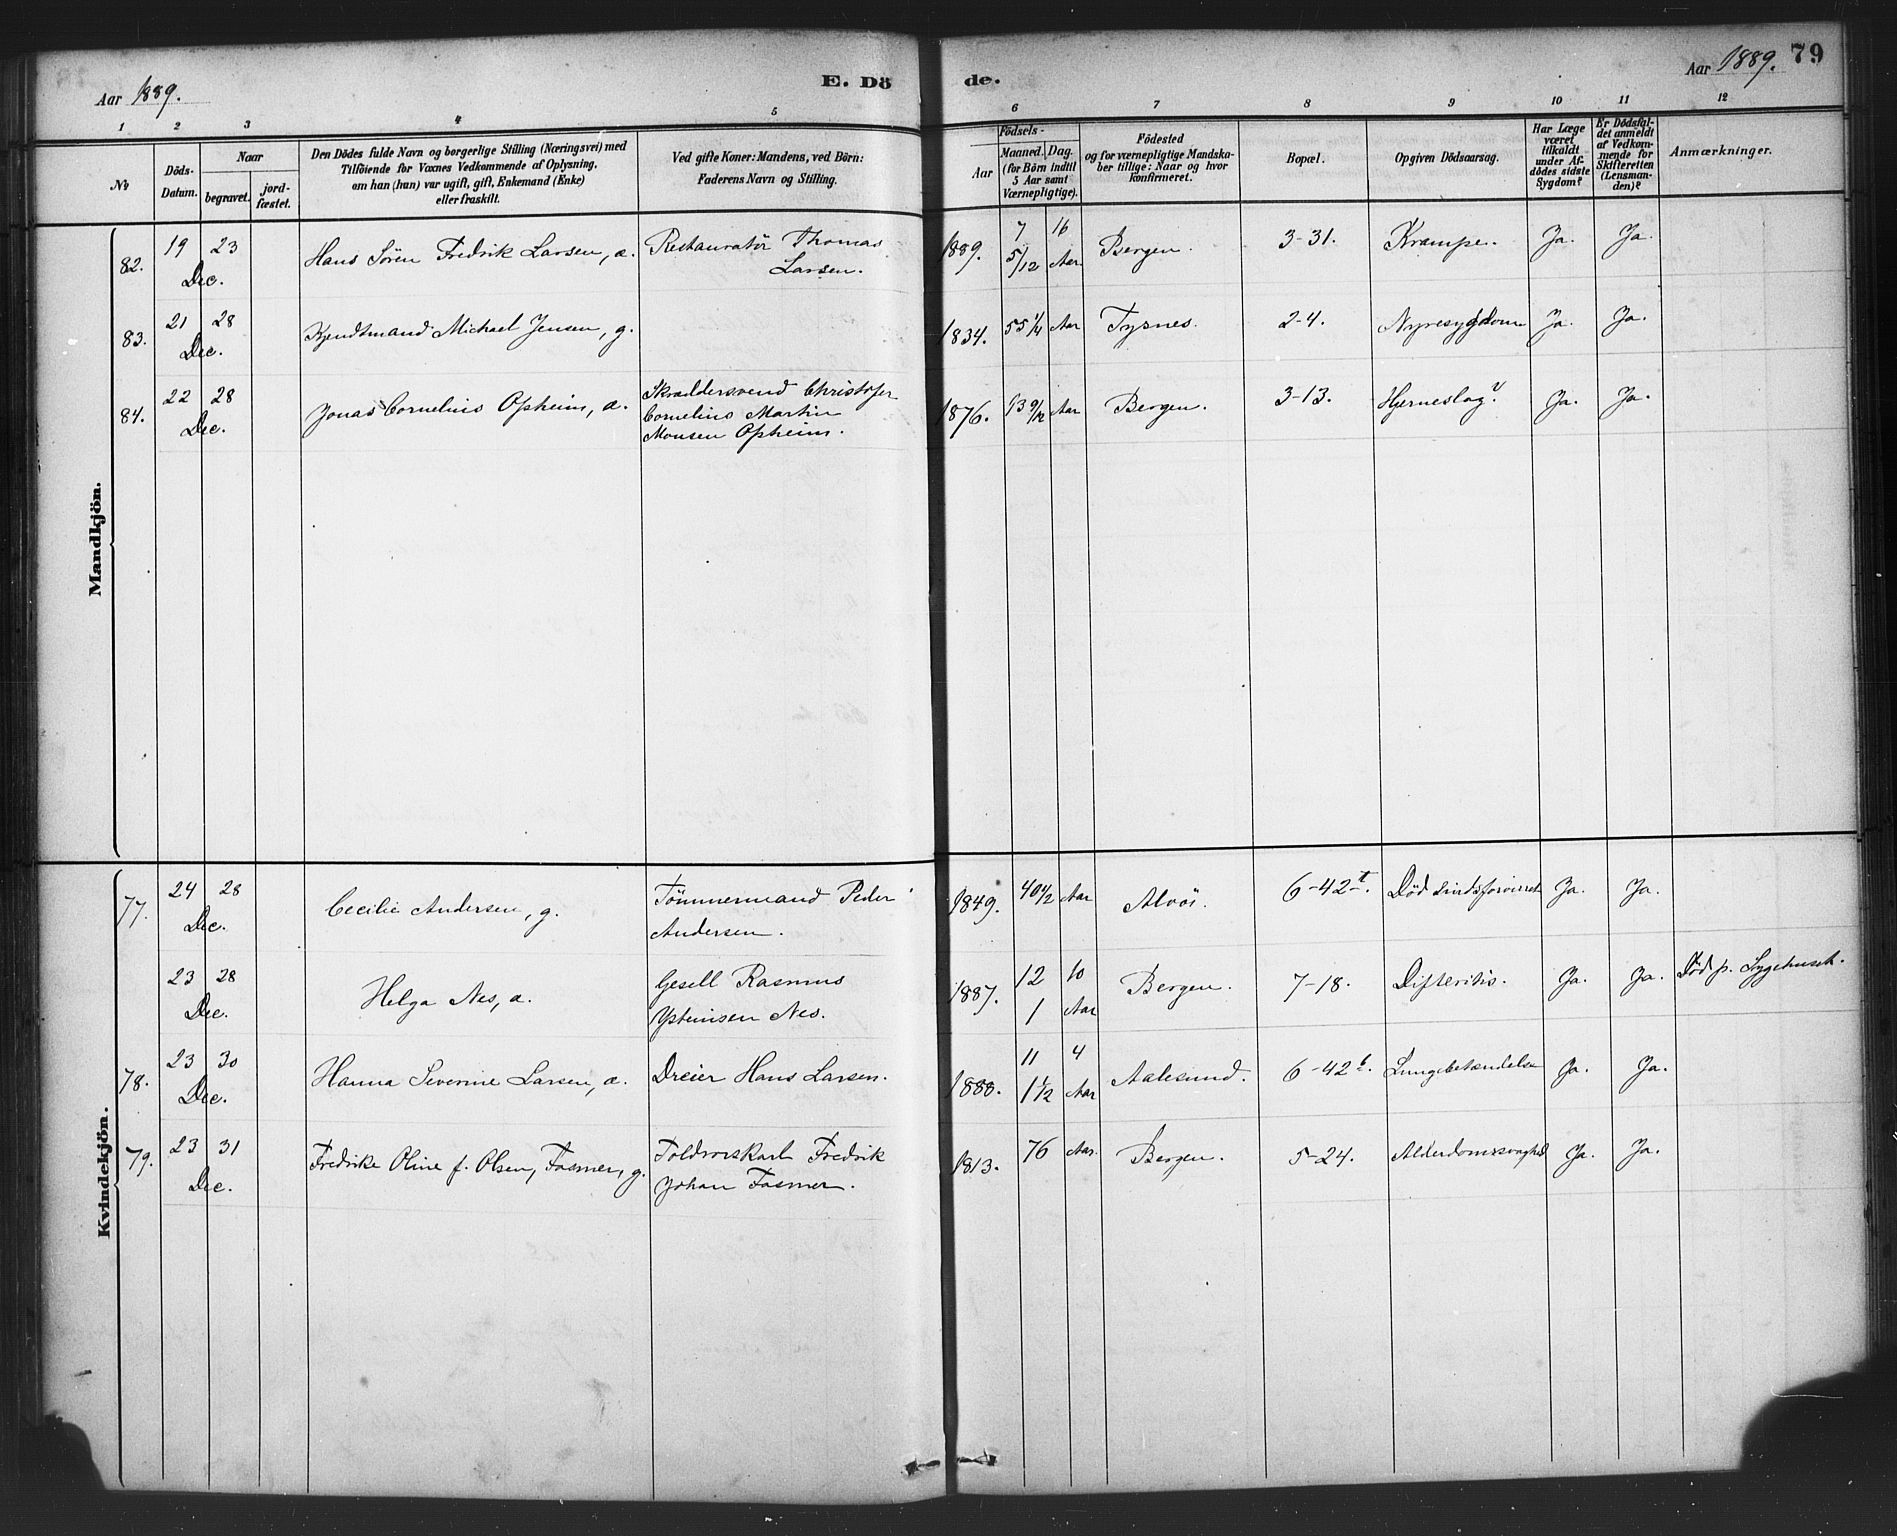 Aar 1889.
E. Dö
de.
Aar 1889.
79
1 2 3 4 5
6 7 8 9 10 11 12
No
Döds-
Datum.
Naar
begravet.
jord-
fæstet.
Den Dödes fulde Navn og borgerlige Stilling (Næringsvei) med
Tilföiende for Voxnes Vedkommende af Oplysning,
om han (hun) var ugift, gift, Enkemand (Enke)
eller fraskilt.
Ved gifte Koner: Mandens, ved Börn:
Faderens Navn og Stilling.
Födsels-
Aar
Maaned. Dag.
(for Börn indtil
5 Aar samt
Værnepligtige).
Födested
og for værnepligtige Mandska-
ber tillige: Naar og hvor
konfirmeret.
Bopæl.
Opgiven Dödsaarsag.
Har Læge
været
tilkaldt
under Af-
dödes sidste
Sygdom?
Er Dödsfal-
det anmeldt
af Vedkom-
mende for
Skifteretten
(Lensman-
den)?
Anmærkninger.
Mandkjön.
82. 19 23 Dec. Hans Sören Fredrik Larsen, a. Restauratör Thomas
Larsen.
1889. 7 16 5/12 Aar Bergen. 3-31. Krampe. Ja. Ja.
83. 21 28 Dec. Kjendtmand Michael Jensen, g.
1834. 55 1/4 Aar Tysnes. 2-4. Nyresygdom Ja. Ja.
84. 22 28 Dec. Jonas Cornelius Opheim, a. Skræddersvend Christofer
Cornelius Martin
Monsen Opheim.
1876. 13 9/12 Aar Bergen. 3-13. Hjerneslag? Ja. Ja.
Kvindekjön.
77. 24 28 Dec. Cecilie Andersen, g. Tömmermand Peder
Andersen.
1849. 40 1/2 Aar Alvöi. 6-42 Död sindsforvirret Ja. Ja.
23 28 Dec. Helga Nes, a. Gesell Rasmus
Ysteinsen Nes.
1887. 12 10 1 Aar Bergen. 7-18. Difteritis. Ja. Ja. Död p. Sygehuset.
78. 23 30 Dec. Hanna Severine Larsen, a. Dreier Hans Larsen.
1888. 11 4 1 1/2 Aar Aalesund. 6-42 b. Lungebetændelse Ja. Ja.
79. 23 31 Dec. Fredrike Oline f. Olsen, Fasmer, g. Toldrorskarl Fredrik
Johan Fasmer.
1813. 76 Aar. Bergen. 5-24. Alderdomssvaghed Ja. Ja.